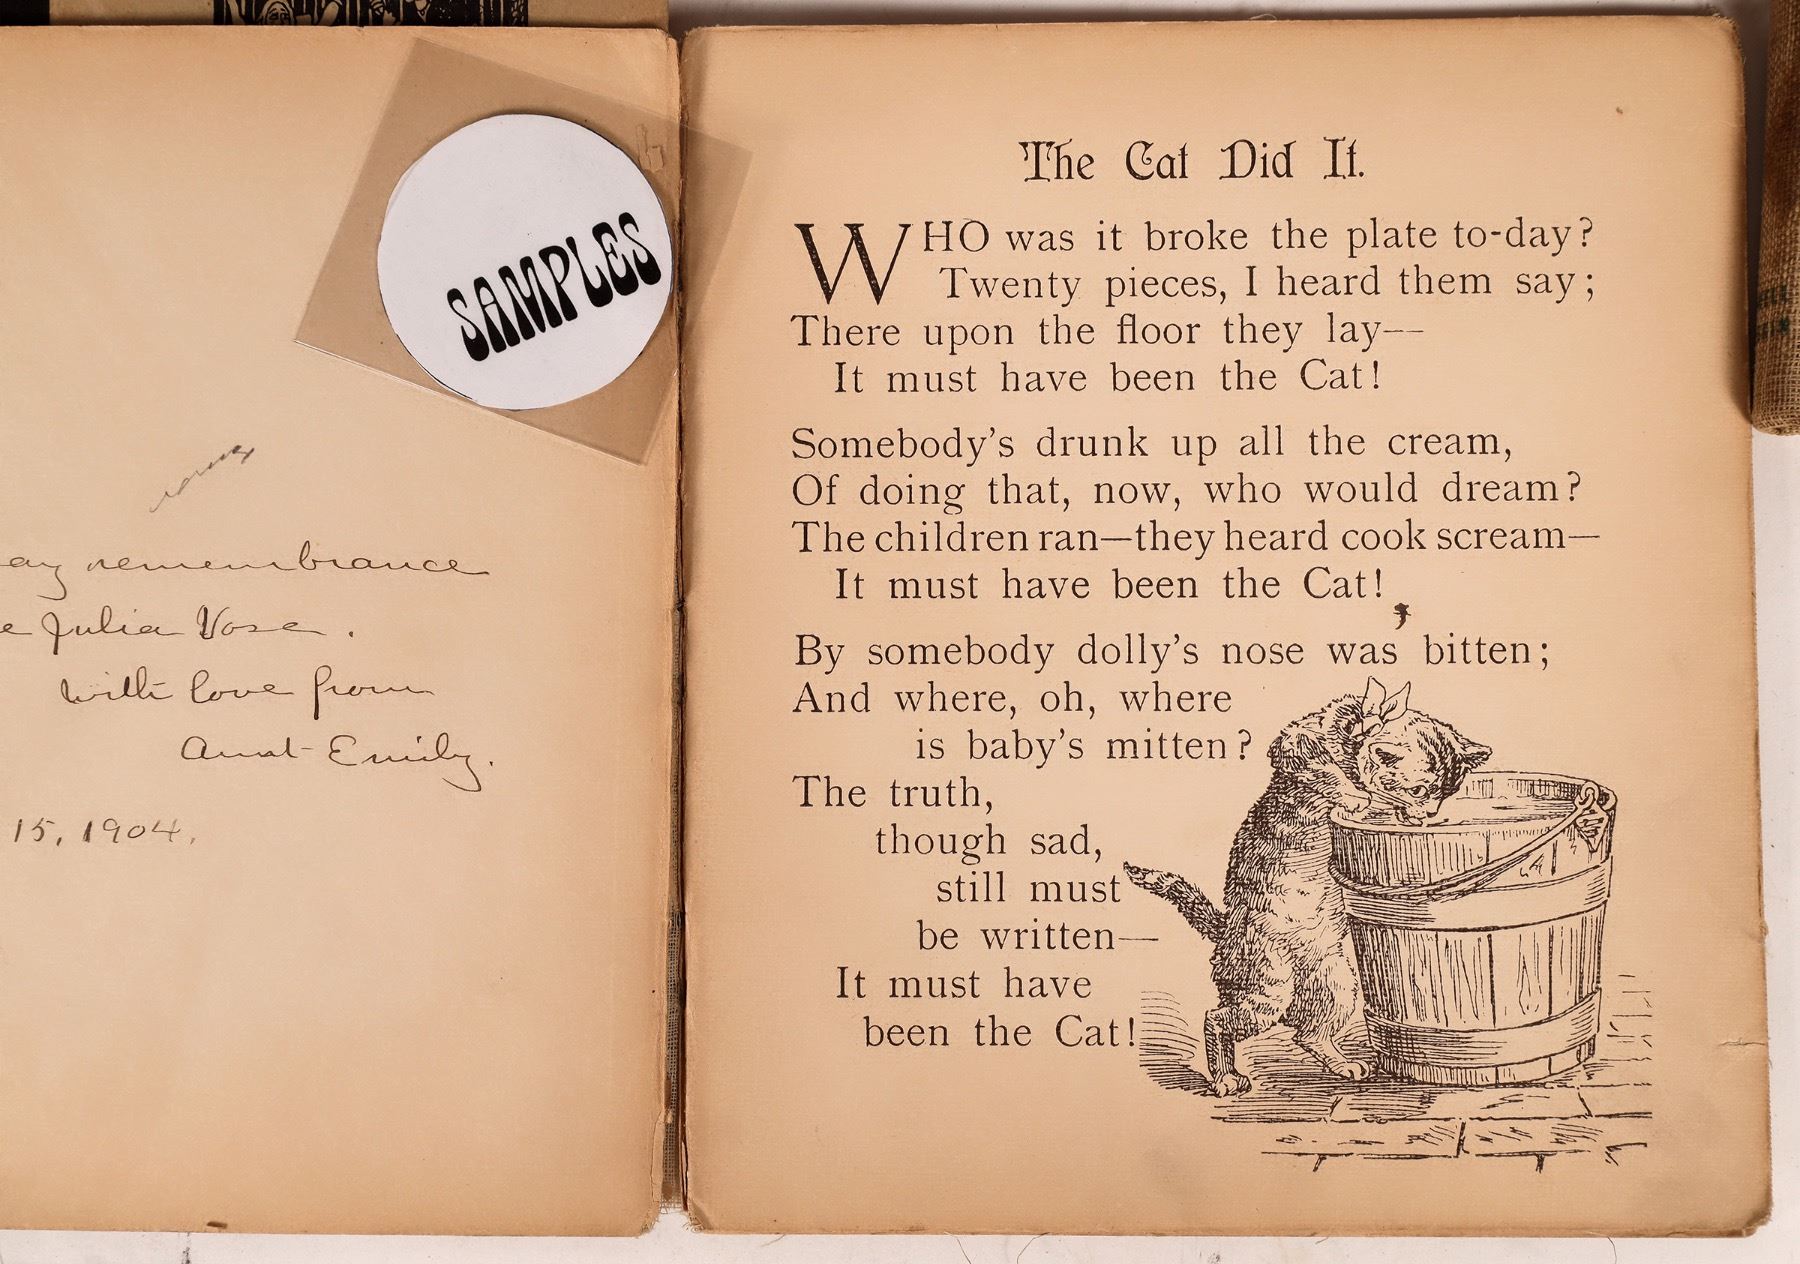 SAMPLES
remembrance
Julia Vose.
with love from
Aunt Emily.
15, 1904.
The Cat Did It.
WHO was it broke the plate to-day?
Twenty pieces, I heard them say;
There upon the floor they lay--
It must have been the Cat!
Somebody's drunk up all the cream,
Of doing that, now, who would dream?
The children ran—they heard cook scream—
It must have been the Cat!
By somebody dolly's nose was bitten;
And where, oh, where
is baby's mitten?
The truth,
though sad,
still must
be written—
It must have
been the Cat!